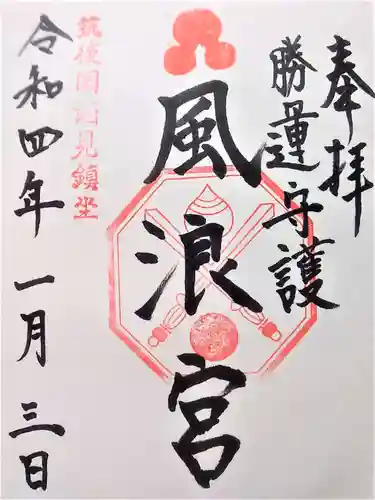 奉拝
勝運守護
風浪宮
筑後国
見鎮坐
令和四年一月三日